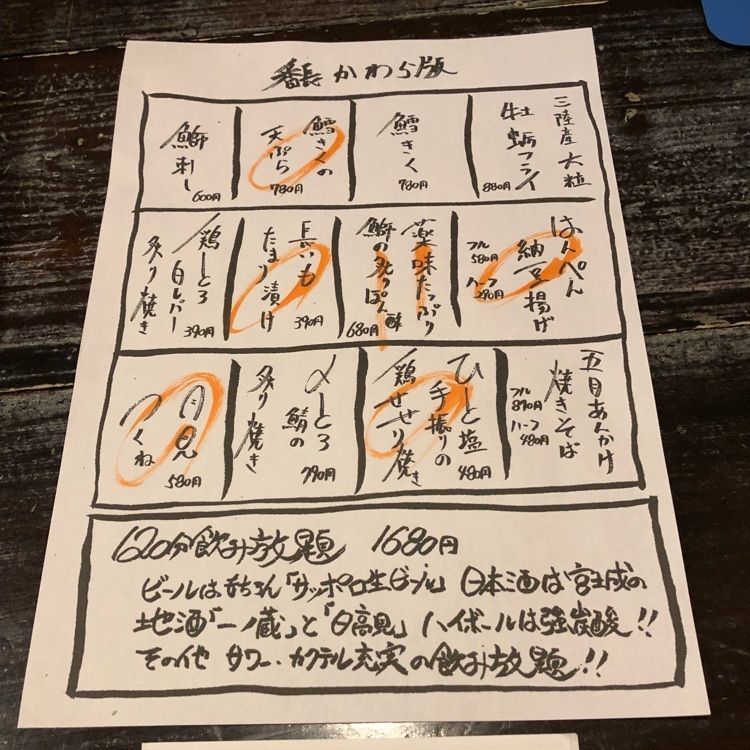 番長かわら版
三陸産大粒
牡蛎フライ
880円
鱈きく
780円
鱈きくの
天ぷら
780円
鰤刺し
600円
はんぺん
納豆揚げ
フル
580円
ハーフ
290円
薬味たっぷり
鰤の炙りぽん酢
680円
長いも
たまり漬け
390円
鶏しとろ
白レバー
炙り焼き
390円
五目あんかけ
焼きそば
フル
890円
ハーフ
480円
ひと塩
手振りの
鶏せせり焼き
480円
〆とろ
鯖の
炙り焼き
790円
月見
つくね
580円
120分飲み放題 1680円
ビールはもちろん「サッポロ生ビール」日本酒は宮城の
地酒「一ノ蔵」と「日高見」ハイボールは強炭酸!!
その他サワー・カクテル充実の飲み放題!!